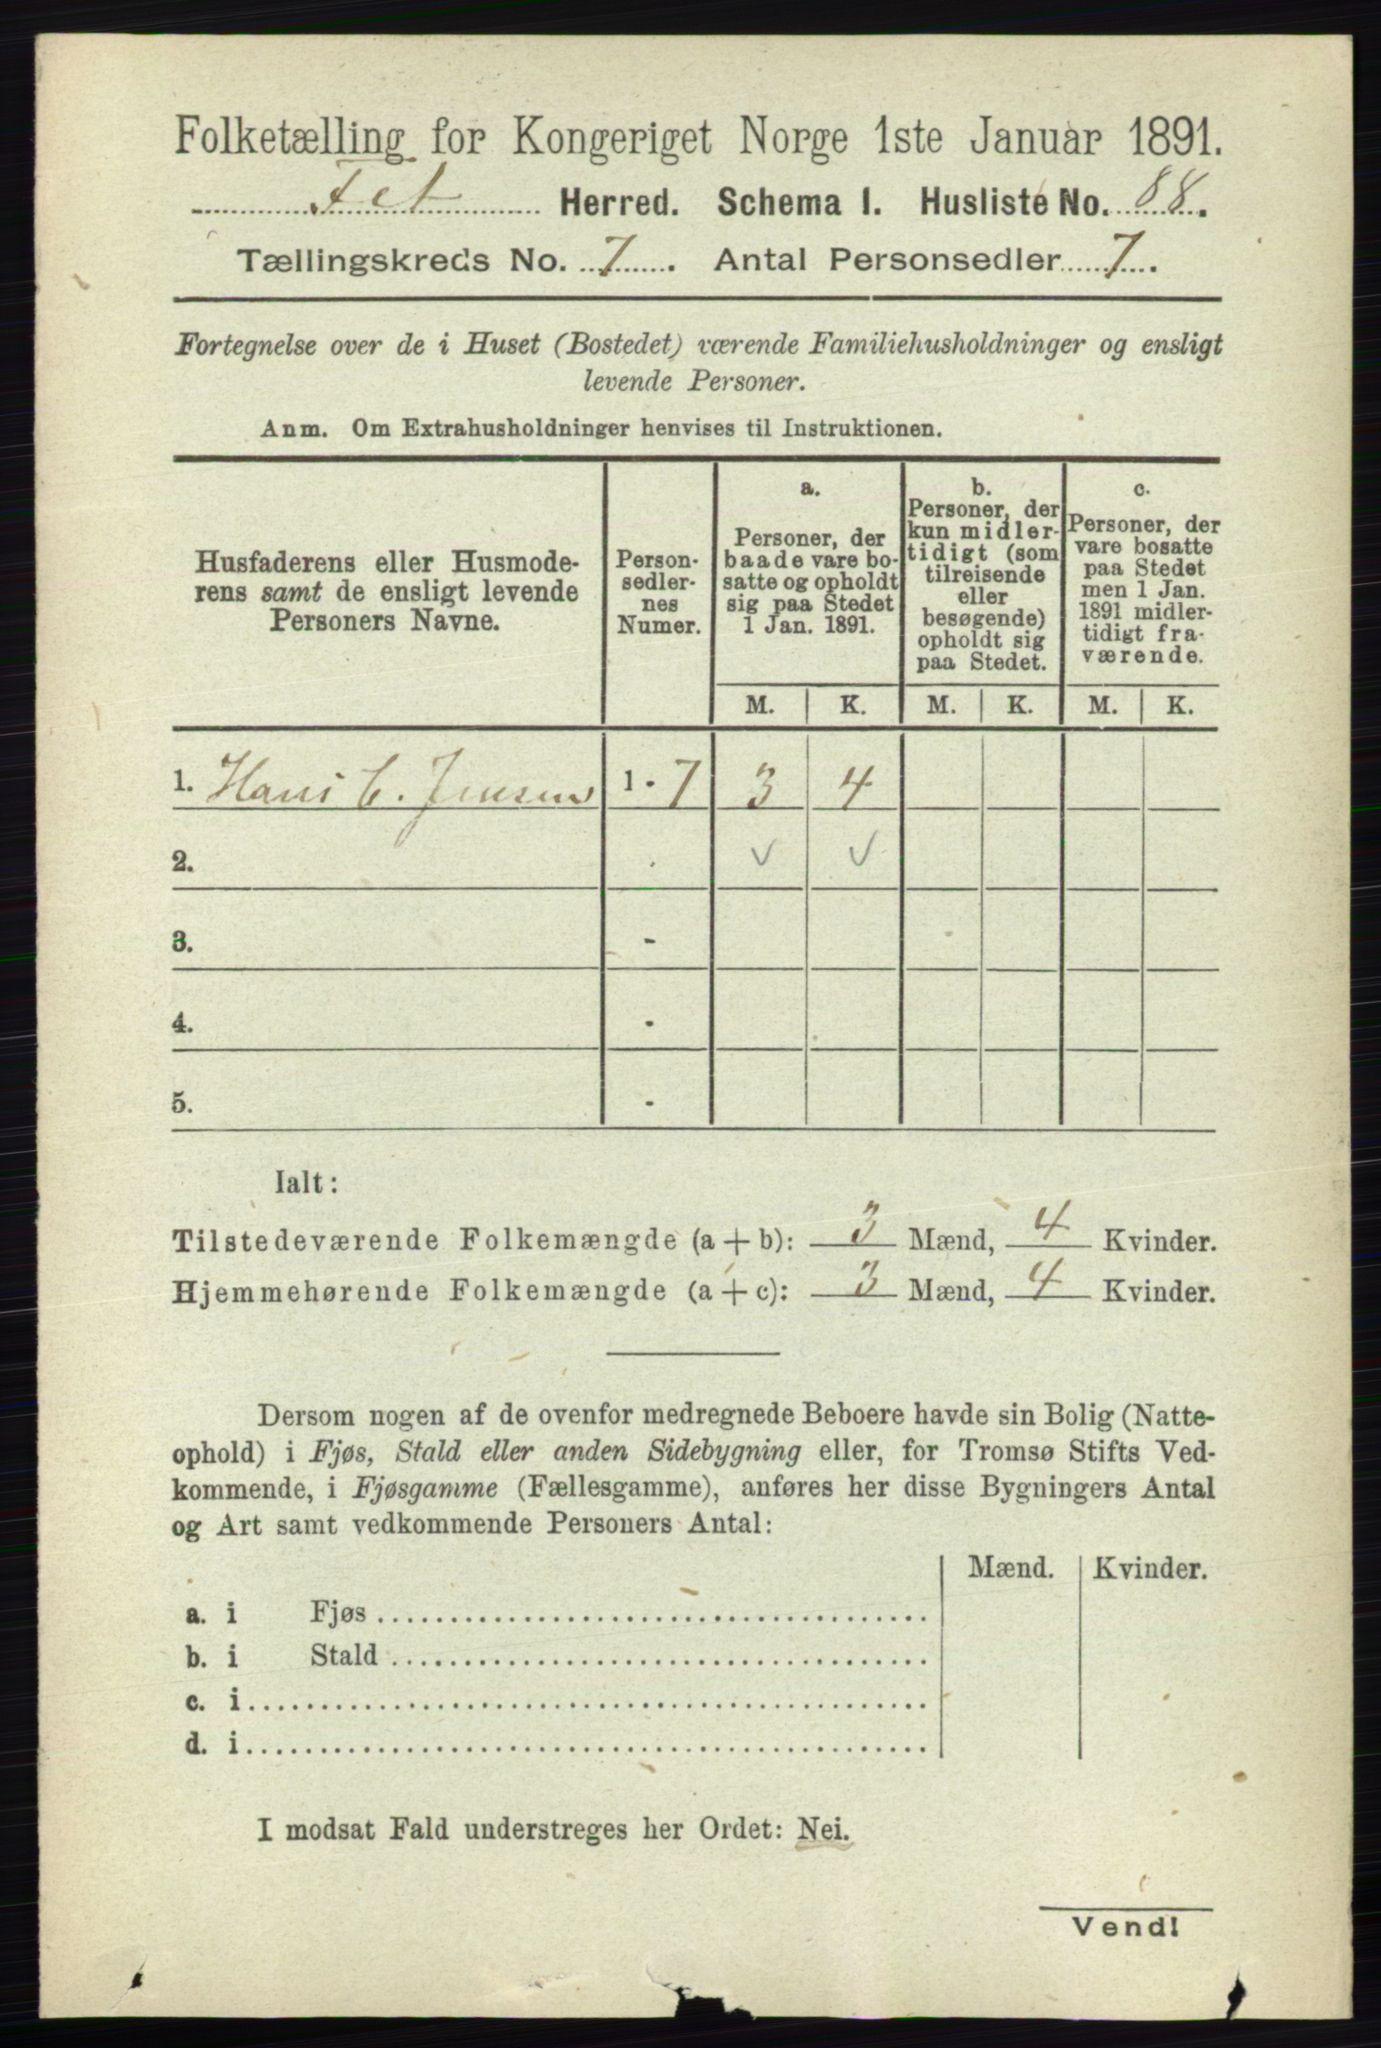 Folketælling for Kongeriget Norge 1ste Januar 1891.
Fet Herred. Schema I. Husliste No. 88.
Tællingskreds No. 7. Antal Personsedler 7.
Fortegnelse over de i Huset (Bostedet) værende Familiehusholdninger og ensligt
levende Personer.
Anm. Om Extrahusholdninger henvises til Instruktionen.
Husfaderens eller Husmode-
rens samt de ensligt levende
Personers Navne.
Person-
sedler-
nes
Numer.
a.
Personer, der
baade vare bo-
satte og opholdt
sig paa Stedet
1 Jan. 1891.
b.
Personer, der
kun midler-
tidigt (som
tilreisende
eller
besøgende)
opholdt sig
paa Stedet.
c.
Personer, der
vare bosatte
paa Stedet
men 1 Jan.
1891 midler-
tidigt fra-
værende.
M. K. M. K. M. K.
1. Hans C. Jensen 1 - 7 3 4
2. . ✓ ✓
3. -
4. -
5. -
Ialt:
Tilstedeværende Folkemængde (a + b): 3 Mænd, 4 Kvinder.
Hjemmehørende Folkemængde (a + c): 3 Mænd, 4 Kvinder.
Dersom nogen af de ovenfor medregnede Beboere havde sin Bolig (Natte-
ophold) i Fjøs, Stald eller anden Sidebygning eller, for Tromsø Stifts Ved-
kommende, i Fjøsgamme (Fællesgamme), anføres her disse Bygningers Antal
og Art samt vedkommende Personers Antal:
Mænd. Kvinder.
a. i Fjøs
b. i Stald
c. i
d. i
I modsat Fald understreges her Ordet: Nei.
Vend!